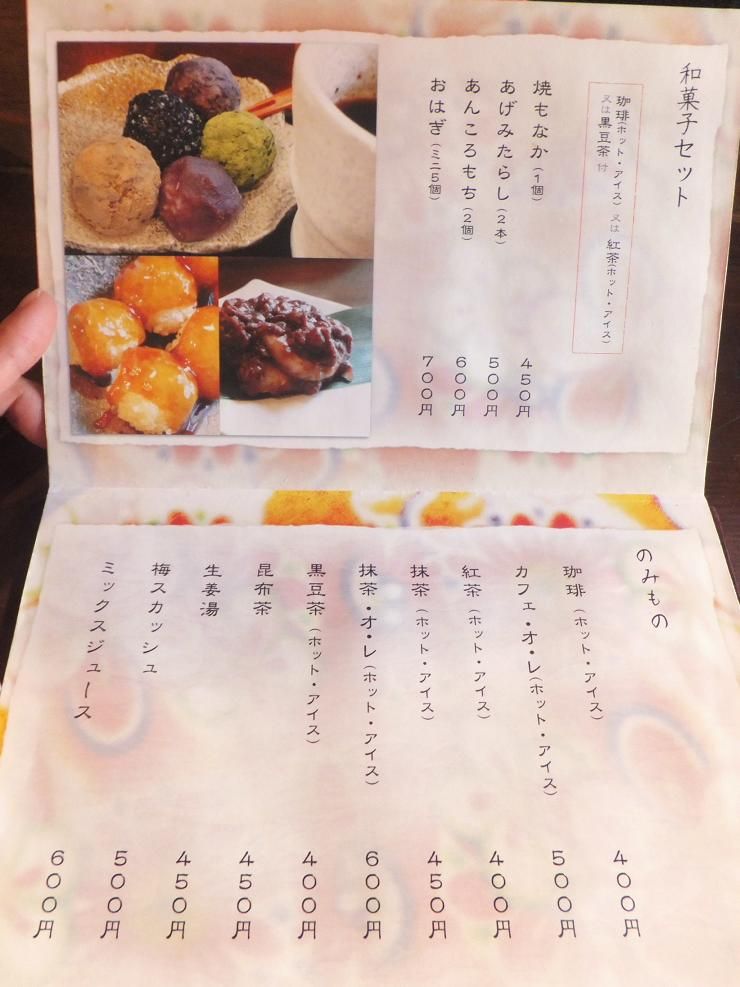 和菓子セット
珈琲(ホット・アイス) 又は 紅茶(ホット・アイス)
又は黒豆茶 付
焼もなか(1個) 450円
あげみたらし(2本) 500円
あんころもち(2個) 600円
おはぎ(ミニ5個) 700円
のみもの
珈琲(ホット・アイス) 400円
カフェ・オ・レ(ホット・アイス) 500円
紅茶(ホット・アイス) 400円
抹茶(ホット・アイス) 450円
抹茶・オ・レ(ホット・アイス) 600円
黒豆茶(ホット・アイス) 400円
昆布茶 450円
生姜湯 450円
梅スカッシュ 500円
ミックスジュース 600円